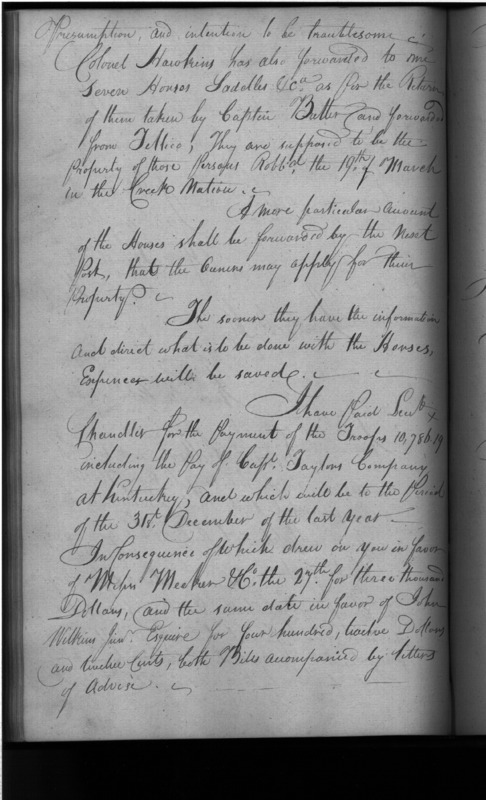 Presumption, and intention to be troublesome
Colonel Hawkins has also forwarded to me
Seven Horses Saddles &ca. as for the Return
of them taken by Captin Butler and forwarded
from Tellico, They are supposed to be the
Property of those Persons Robbed the 19th of March
in the Creek Nation.
A more particular amount
of the Horses shall be forwarded by the Next
Post, that the Owners may apply for their
Property.
The sooner they have the information
and direct what is to be done with the Horses,
Expences will be saved.
I have Paid Leut.
Chandler for the Payment of the Troops 10,786.19
including the Pay of Capt. Taylors Company
at Kentuckey, and which will be to the Period
of the 31st. December of the last year
In Consequence of Which drew on you in favor
of Messrs Meeker & Co. the 27th. for three thousand
Dollars, and the same date in favor of John
Wilkins Junr. Esquire for four hundred, twelve Dollars
and twelve Cents, both Bills accompanied by letters
of Advise.